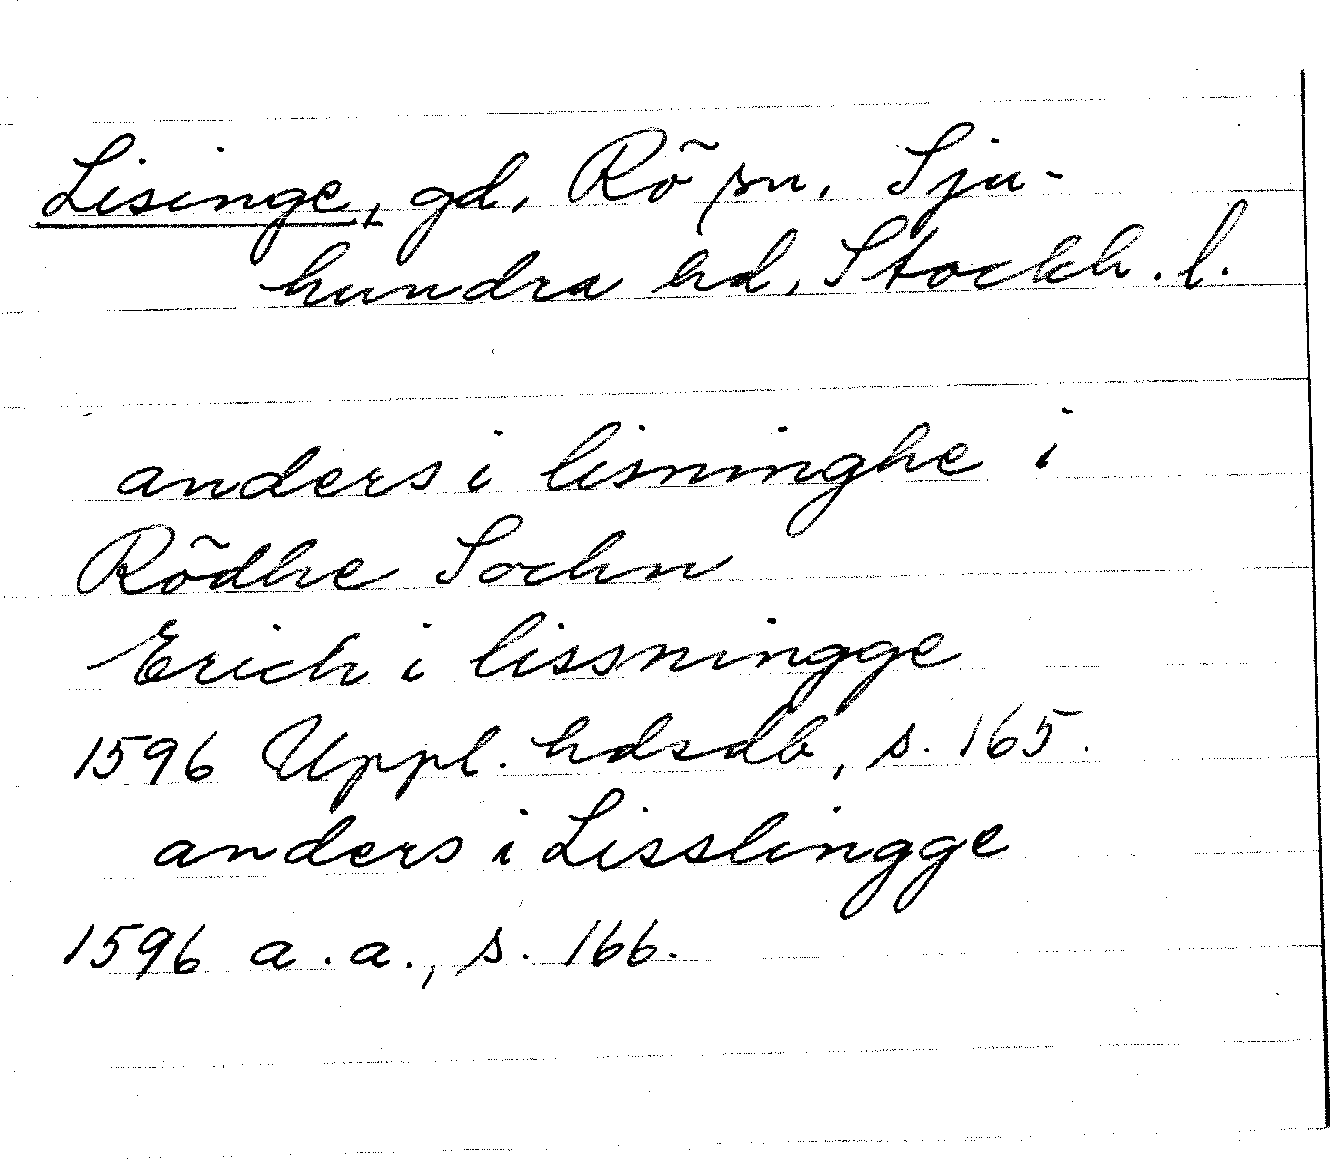 Lisinge, gd, Rö sn, Sju-
hundra hd, Stockh. l.
anders i lisninghe i
Rödhe Sochn
Erich i lissningge
1596 Uppl. hdsdb, s. 165.
anders i Lisslingge
1596 a.a., s. 166.